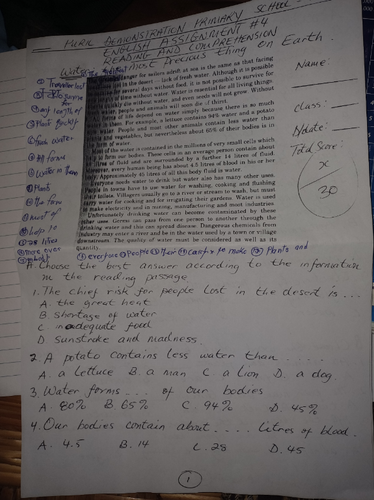 MURK DEMONSTRATION PRIMARY SCHOOL
ENGLISH ASSIGNMENT #4
READING AND COMPREHENSION
Water the most precious thing on Earth.
Name:
class:
Ndate:
Total Score:
X
30
danger for sailors adrift at sea is the same as that facing
in the desert – lack of fresh water. Although it is possible
several days without food, it is not possible to survive for
of time without water. Water is essential for all living things.
quickly die without water, and even seeds will not grow. Without
people and animals will soon die of thirst.
forms of life depend on water simply because there is so much
in them. For example, a lettuce contains 94% water and a potato
water. People and most other animals contain less water than
and vegetables, but nevertheless about 65% of their bodies is in
form of water.
Most of the water is contained in the millions of very small cells which
form our bodies. These cells in an average person contain about
of fluid and are surrounded by a further 14 litres of fluid.
Moreover, every human being has about 4.5 litres of blood in his or her
Approximately 3 litres of all this body fluid is water.
Everyone needs water to drink but water also has many other uses.
People in towns have to use water for washing, cooking and flushing
away toilets. Villagers usually go to a river or stream to wash, but must
carry water for cooking and for irrigating their gardens. Water is used
to make electricity and in mining, manufacturing and most industries.
Unfortunately drinking water can become contaminated by these
other uses. Germs can pass from one person to another through the
drinking water and this can spread disease. Dangerous chemicals from
industry may enter a river and be in the water used by a town or village
downstream. The quality of water must be considered as well as its
quantity.
A. Choose the best answer according to the information
in the reading passage
1. The chief risk for people lost in the desert is ...
A. the great heat
B. Shortage of water
C. inadequate food
D. sunstroke and madness.
2. A potato contains less water than .....
A. a lettuce B. a man C. a lion D. a dog
3. Water forms ... of our bodies
A. 80% B. 65% C. 94% D. 45%
4. Our bodies contain about .... litres of blood.
A. 4.5 B. 14 C. 28 D. 45
1